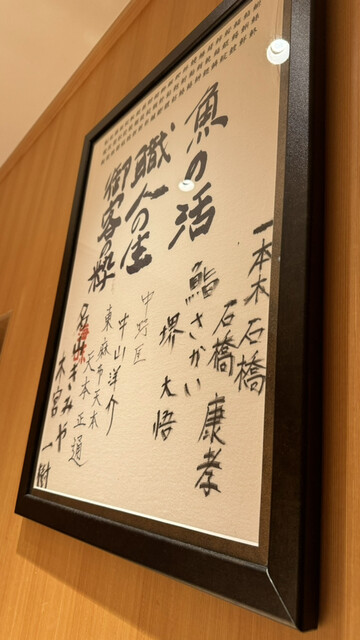 魚の活
職人の生
御客の
一本木 石橋
石橋 康孝
鮨さかい
堺 大悟
中野
中山洋介
東麻布天本
天本正通
名山きみや
木宮一樹